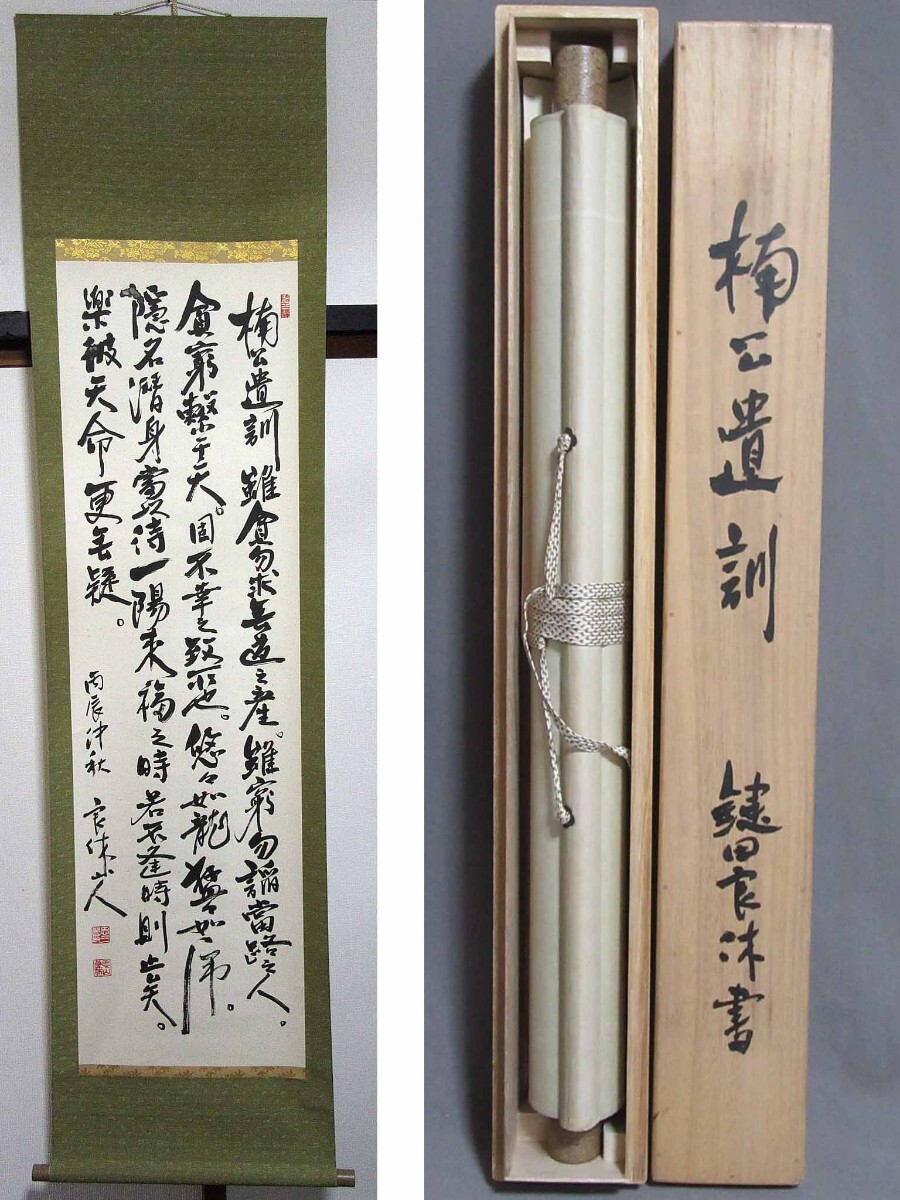 楠公遺訓 雖貧勿求無道之産。雖窮勿謟當路之人。
貧窮繋于天。固不幸之致所也。悠々如龍猛々如沸。
隠名潜身寧以待一陽来福之時若不逢時則止矣。
楽彼天命更無疑。
丙辰仲秋 良沐山人
楠公遺訓
鍵田良沐書